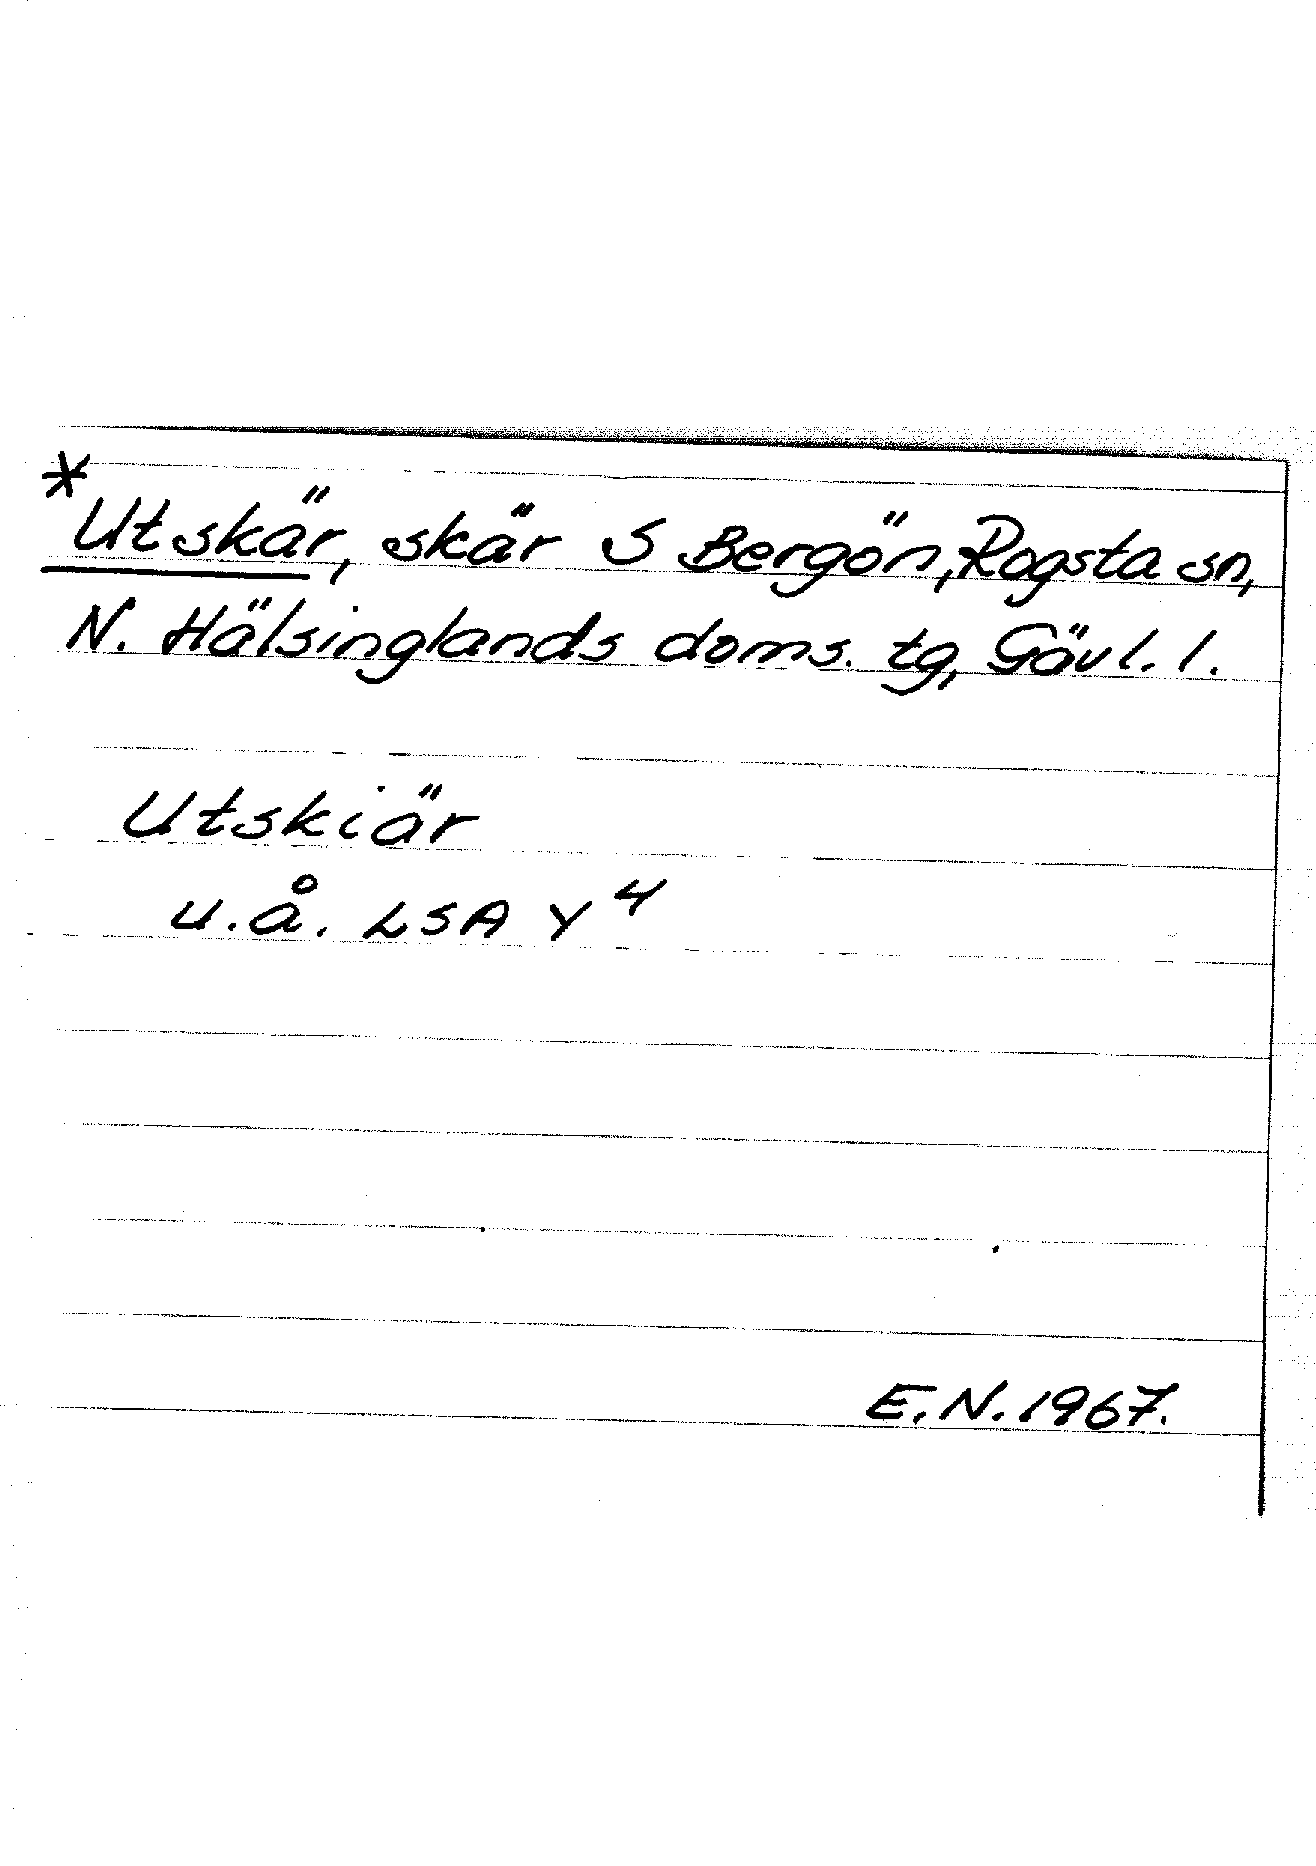 *Utskär, skär S Bergön, Rogsta sn,
N. Hälsinglands doms. tg, Gävl. l.
Utskiär
u.å. LSA Y 4
E.N. 1967.